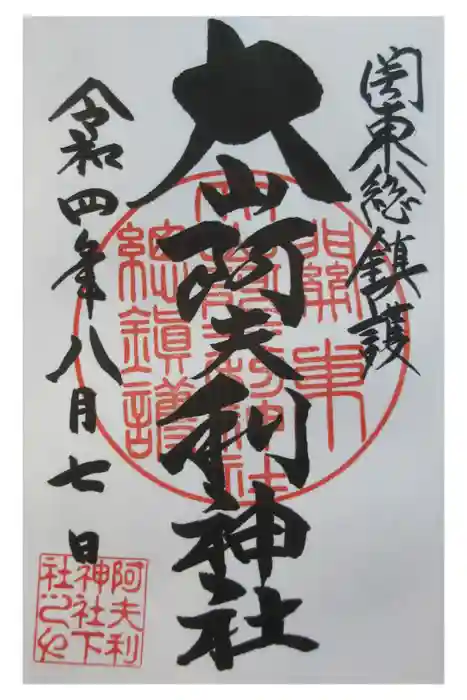 関東総鎮護
大山阿夫利神社
令和四年八月七日
關東
大山阿夫利神社
總鎮護
阿夫利
神社下
社之印